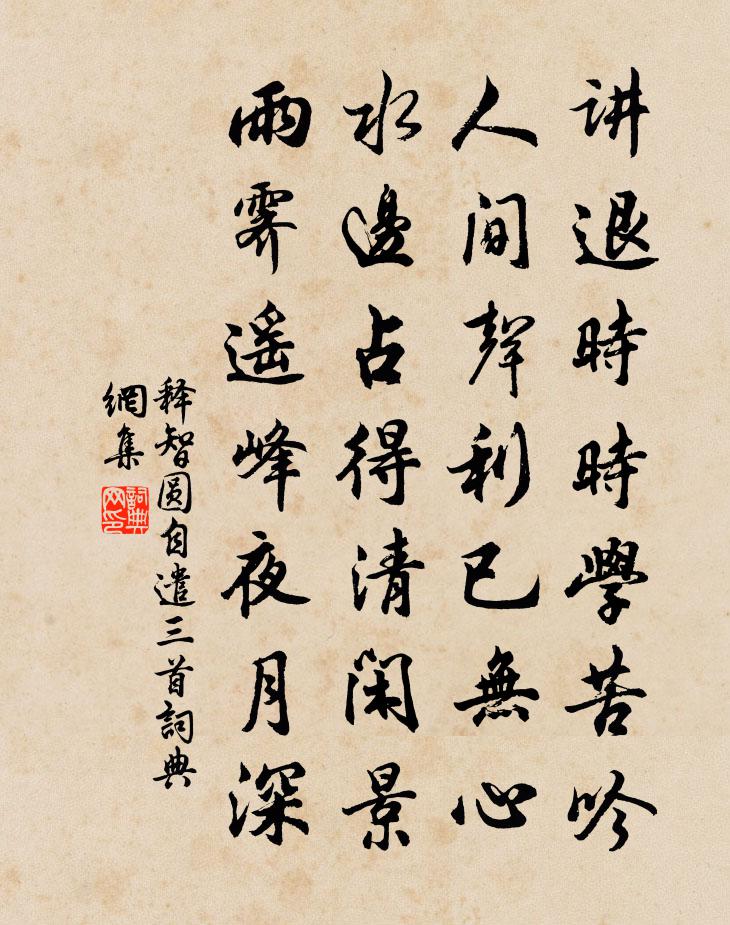 讲退時時學苦吟
人间聲利已無心
水邊占得清閑景
雨霽遥峰夜月深
释智圆自遣三首詞典
網集
詞典
网印